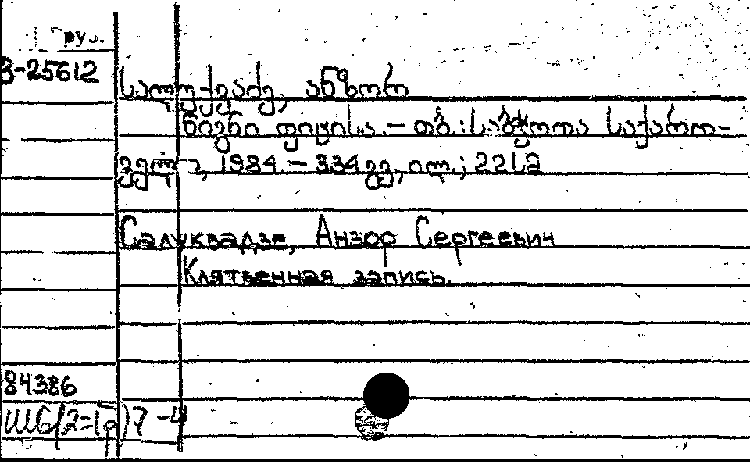 Груз.
В-25612
სალუქვაძე, ანზორ
წიგნი ფიცისა. – თბ.: საბჭოთა საქართ-
ველო, 1984. – 334 გვ., ილ.; 22 სმ
Салуквадзе, Анзор Сергеевич
Клятвенная запись.
84386